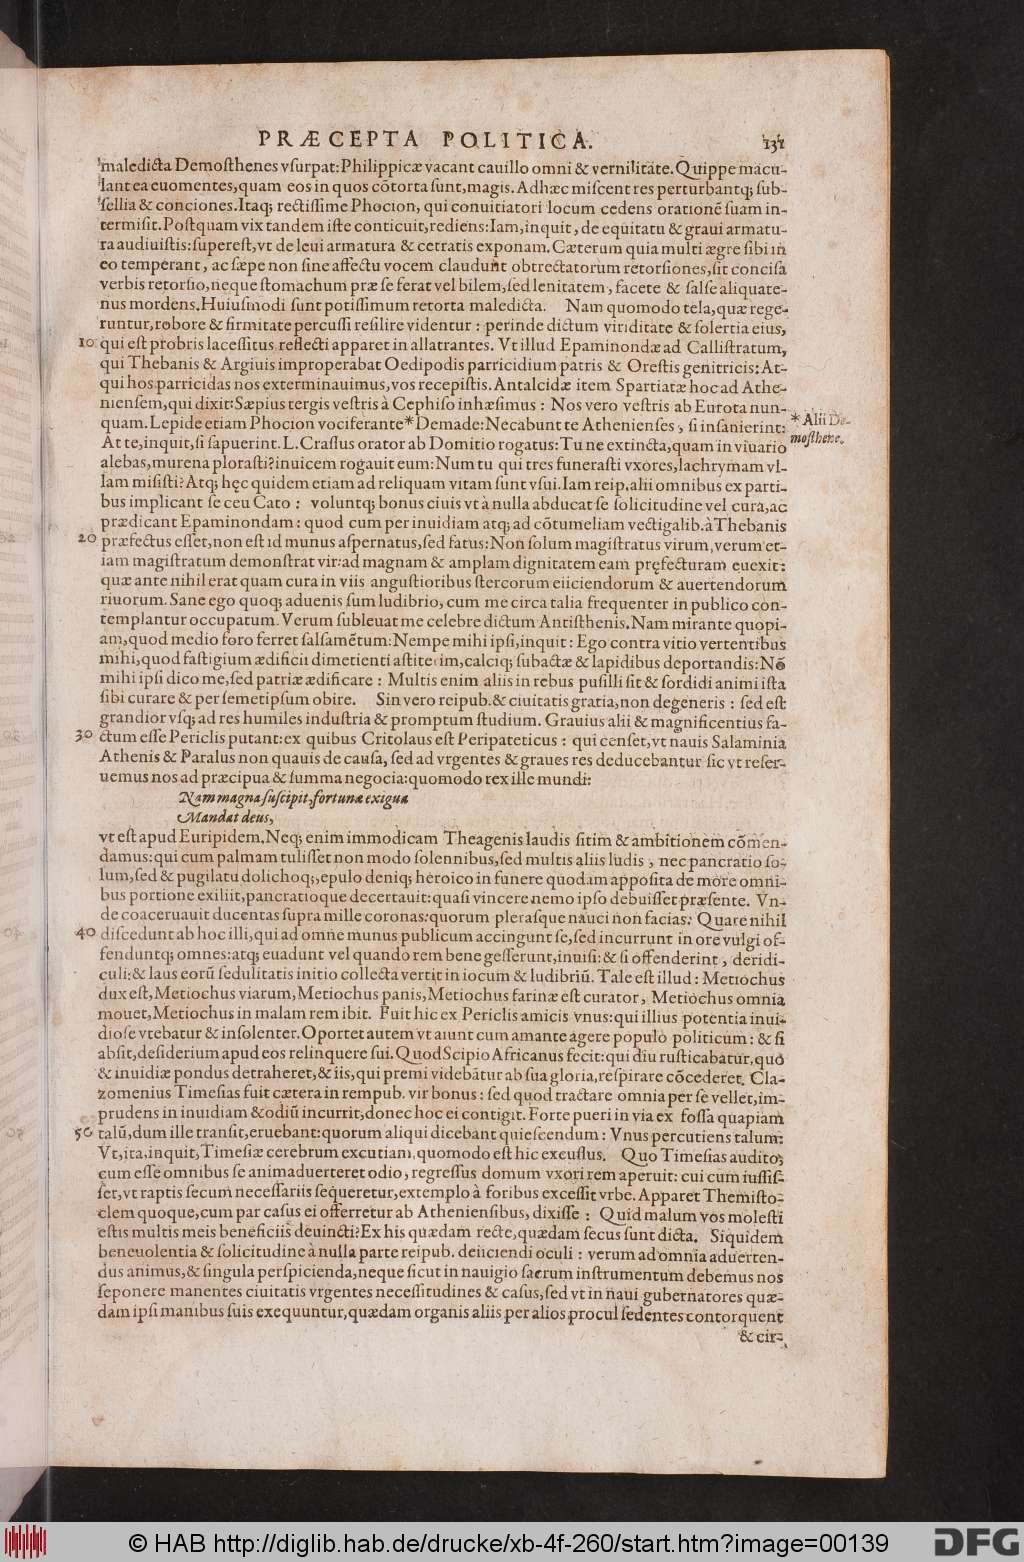 PRÆCEPTA POLITICA. 131
maledicta Demosthenes vsurpat: Philippicæ vacant cauillo omni & vernilitate. Quippe macu-
lant ea euomentes, quam eos in quos cōtorta sunt, magis. Adhæc miscent res perturbantq; sub-
sellia & conciones. Itaq; rectissime Phocion, qui conuitiatori locum cedens orationē suam in-
termisit. Postquam vix tandem iste conticuit, rediens: Iam, inquit, de equitatu & graui armatu-
ra audiuistis: superest, vt de leui armatura & cetratis exponam. Cæterum quia multi ægre sibi in
eo temperant, ac sæpe non sine affectu vocem claudunt obtrectatorum retorsiones, sit concisa
verbis retorsio, neque stomachum præ se ferat vel bilem, sed lenitatem, facete & salse aliquate-
nus mordens. Huiusmodi sunt potissimum retorta maledicta. Nam quomodo tela, quæ rege-
runtur, robore & firmitate percussi resilire videntur: perinde dictum viriditate & solertia eius,
10 qui est probris lacessitus reflecti apparet in allatrantes. Vt illud Epaminondæ ad Callistratum,
qui Thebanis & Argiuis improperabat Oedipodis parricidium patris & Orestis genitricis: At-
qui hos parricidas nos exterminauimus, vos recepistis. Antalcidæ item Spartiatæ hoc ad Athe-
niensem, qui dixit: Sæpius tergis vestris à Cephiso inhæsimus: Nos vero vestris ab Eurota nun-
quam. Lepide etiam Phocion vociferante *Demade: Necabunt te Athenienses, si insanierint: *Alii De-
At te, inquit, si sapuerint. L. Crassus orator ab Domitio rogatus: Tu ne extincta, quam in viuario mosthene.
alebas, murena plorasti? inuicem rogauit eum: Num tu qui tres funerasti vxores, lachrymam vl-
lam misisti? Atq; hęc quidem etiam ad reliquam vitam sunt vsui. Iam reip. alii omnibus ex parti-
bus implicant se ceu Cato: voluntq; bonus ciuis vt à nulla abducat se solicitudine vel cura, ac
prædicant Epaminondam: quod cum per inuidiam atq; ad cōtumeliam vectigalib. à Thebanis
20 præfectus esset, non est id munus aspernatus, sed fatus: Non solum magistratus virum, verum et-
iam magistratum demonstrat vir: ad magnam & amplam dignitatem eam pręfecturam euexit:
quæ ante nihil erat quam cura in viis angustioribus stercorum eiiciendorum & auertendorum
riuorum. Sane ego quoq; aduenis sum ludibrio, cum me circa talia frequenter in publico con-
templantur occupatum. Verum subleuat me celebre dictum Antisthenis. Nam mirante quopi-
am, quod medio foro ferret salsamētum: Nempe mihi ipsi, inquit: Ego contra vitio vertentibus
mihi, quod fastigium ædificii dimetienti astiterim, calciq; subactæ & lapidibus deportandis: Nō
mihi ipsi dico me, sed patriæ ædificare: Multis enim aliis in rebus pusilli sit & sordidi animi ista
sibi curare & per semetipsum obire. Sin vero reipub. & ciuitatis gratia, non degeneris: sed est
grandior vsq; ad res humiles industria & promptum studium. Grauius alii & magnificentius fa-
30 ctum esse Periclis putant: ex quibus Critolaus est Peripateticus: qui censet, vt nauis Salaminia
Athenis & Paralus non quauis de causa, sed ad vrgentes & graues res deducebantur sic vt reser-
uemus nos ad præcipua & summa negocia: quomodo rex ille mundi:
Nam magna suscipit, fortunæ exigua
Mandat deus,
vt est apud Euripidem. Neq; enim immodicam Theagenis laudis sitim & ambitionem cōmen-
damus: qui cum palmam tulisset non modo solennibus, sed multis aliis ludis, nec pancratio so-
lum, sed & pugilatu dolichoq;, epulo deniq; heroico in funere quodam apposita de more omni-
bus portione exiliit, pancratioque decertauit: quasi vincere nemo ipso debuisset præsente. Vn-
de coaceruauit ducentas supra mille coronas: quorum plerasque nauci non facias. Quare nihil
40 discedunt ab hoc illi, qui ad omne munus publicum accingunt se, sed incurrunt in ore vulgi of-
fenduntq; omnes: atq; euadunt vel quando rem bene gesserunt, inuisi: & si offenderint, deridi-
culi: & laus eorū sedulitatis initio collecta vertit in iocum & ludibriū. Tale est illud: Metiochus
dux est, Metiochus viarum, Metiochus panis, Metiochus farinæ est curator, Metiochus omnia
mouet, Metiochus in malam rem ibit. Fuit hic ex Periclis amicis vnus: qui illius potentia inui-
diose vtebatur & insolenter. Oportet autem vt aiunt cum amante agere populo politicum: & si
absit, desiderium apud eos relinquere sui. Quod Scipio Africanus fecit: qui diu rusticabatur, quo
& inuidiæ pondus detraheret, & iis, qui premi videbātur ab sua gloria, respirare cōcederet. Cla-
zomenius Timesias fuit cætera in rempub. vir bonus: sed quod tractare omnia per se vellet, im-
prudens in inuidiam & odiū incurrit, donec hoc ei contigit. Forte pueri in via ex fossa quapiam
50 talū, dum ille transit, eruebant: quorum aliqui dicebant quiescendum: Vnus percutiens talum:
Vt, ita, inquit, Timesiæ cerebrum excutiam, quomodo est hic excussus. Quo Timesias audito,
cum esse omnibus se animaduerteret odio, regressus domum vxori rem aperuit: cui cum iussis-
set, vt raptis secum necessariis sequeretur, extemplo à foribus excessit vrbe. Apparet Themisto-
clem quoque, cum par casus ei offerretur ab Atheniensibus, dixisse: Quid malum vos molesti
estis multis meis beneficiis deuincti? Ex his quædam recte, quædam secus sunt dicta. Siquidem
beneuolentia & solicitudine à nulla parte reipub. deiiciendi oculi: verum ad omnia aduerten-
dus animus, & singula perspicienda, neque sicut in nauigio sacrum instrumentum debemus nos
seponere manentes ciuitatis vrgentes necessitudines & casus, sed vt in naui gubernatores quæ-
dam ipsi manibus suis exequuntur, quædam organis aliis per alios procul sedentes contorquent
& cir-
© HAB http://diglib.hab.de/drucke/xb-4f-260/start.htm?image=00139 DFG